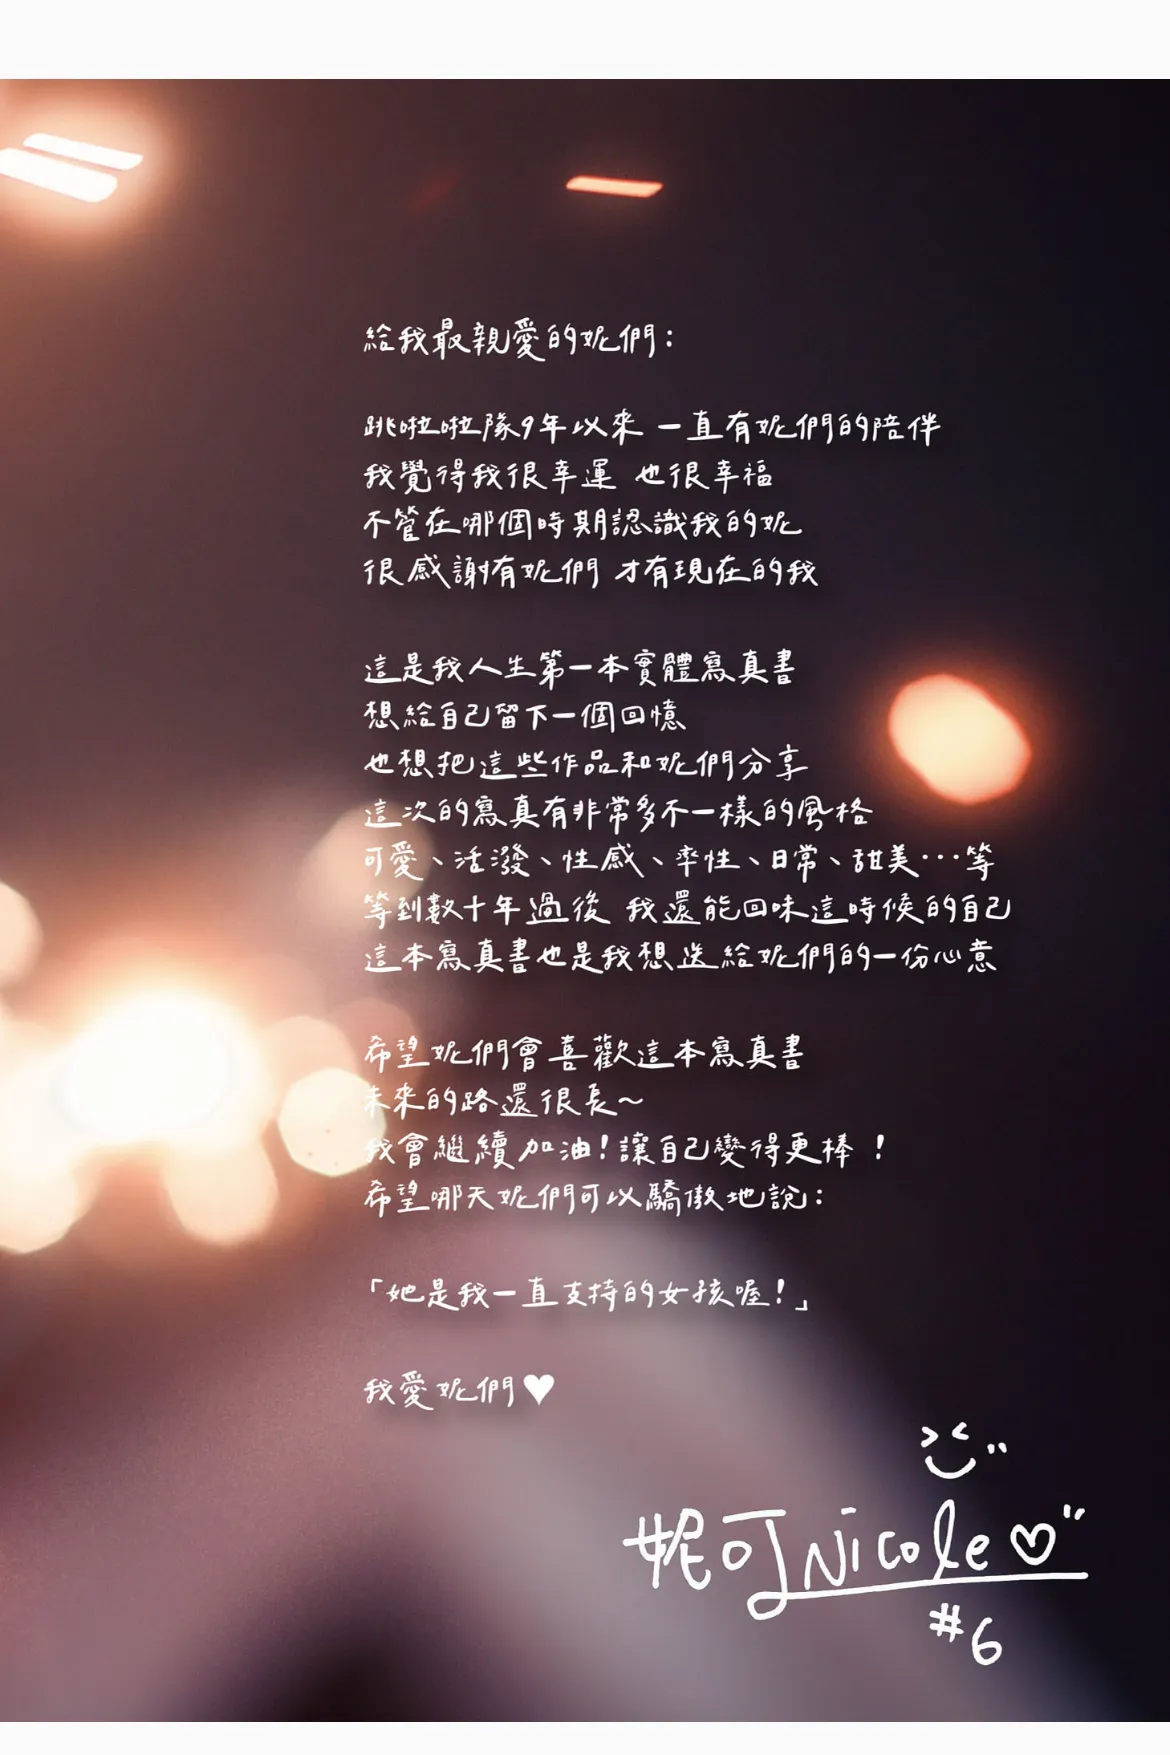 給我最親愛的妮們：
跳啦啦隊9年以來 一直有妮們的陪伴
我覺得我很幸運 也很幸福
不管在哪個時期認識我的妮
很感謝有妮們 才有現在的我
這是我人生第一本實體寫真書
想給自己留下一個回憶
也想把這些作品和妮們分享
這次的寫真有非常多不一樣的風格
可愛、活潑、性感、率性、日常、甜美⋯等
等到數十年過後 我還能回味這時候的自己
這本寫真書也是我想送給妮們的一份心意
希望妮們會喜歡這本寫真書
未來的路還很長~
我會繼續加油！讓自己變得更棒！
希望哪天妮們可以驕傲地說：
「她是我一直支持的女孩喔！」
我愛妮們♥
妮可Nicole♡
#6